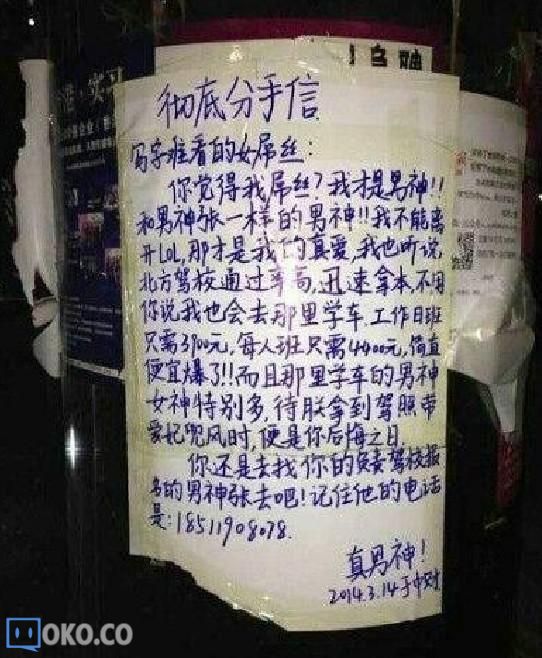 彻底分手信
写字难看的女屌丝：
你觉得我屌丝？我才是男神！！
和男神张一样的男神！！我不能离
开LOL，那才是我的真爱，我也听说，
北方驾校通过率高，迅速拿本，不用
你说我也会去那里学车，工作日班
只需3900元，每人班只需4400元，简直
便宜爆了！！而且那里学车的男神
女神特别多，待朕拿到驾照带
爱妃兜风时，便是你后悔之日。
你还是去找你的负责驾校报
名的男神张去吧！记住他的电话
是：18511908078.
真男神！
2014.3.14于中财
实习
OKO.CO